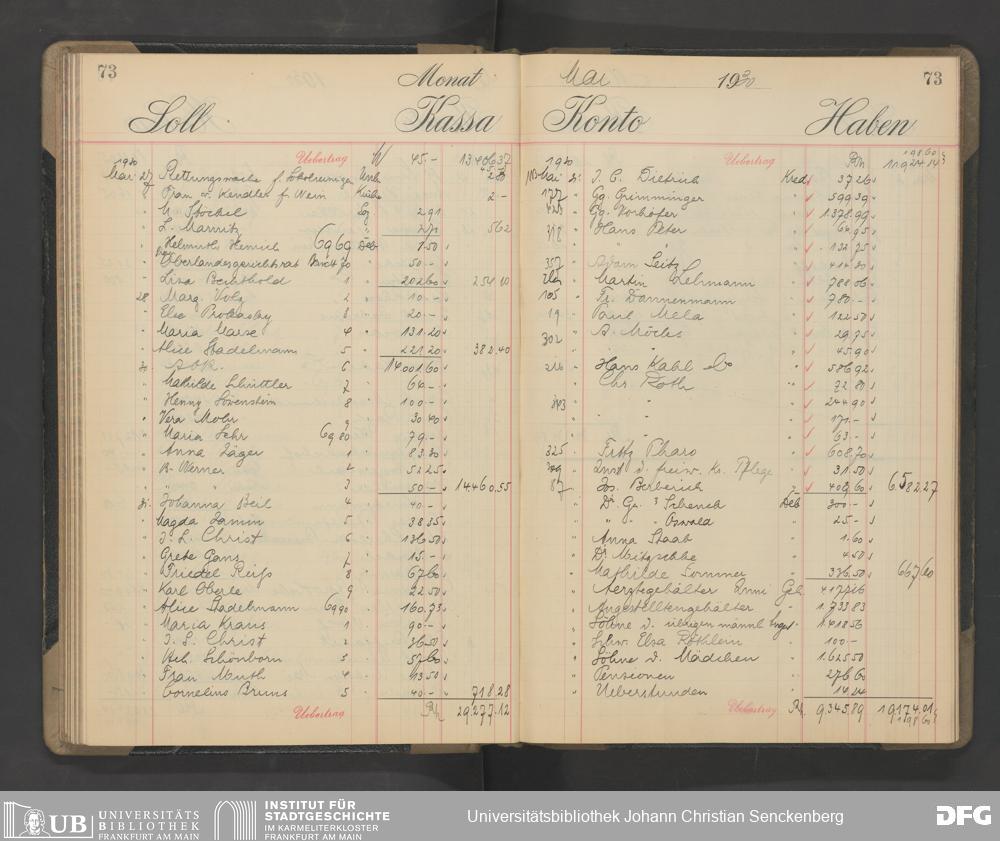 73
Monat
Soll Kassa
Uebertrag 45,- 13406,37
1930
Mai 27 Rettungswache f.
Frau v. Kendler f. Wein Küche 2 -
U. Stöckel 2,91
L. Marnitz 2,71 5 62
Helmuth Heinrich 6969 Deb 7.50
Oberlandesgerichtsrat 70 50 -
Lisa Berthold 1 202 60 251 10
28 Marg. Volz 2 10 -
Else Prokasky 3 20 -
Maria Marse 4 131.20
Alice Stadelmann 5 221.20 382.40
A.O.K. 6 14001,60
Mathilde Schüttler 7 64 -
Henny Löwenstein 8 100 -
Vera Mohr 9 30 40
Maria Sehr 6980 79 -
Anna Jäger 1 83.30
R. Werner 2 52 25
" " 3 50 - 14460.55
Johanna Beil 4 40 -
Magda Jamin 5 38 35
J. L. Christ 6 136 50
Grete Gans 7 15 -
Friedel Reiss 8 67 60
Karl Oberle 9 22 50
Alice Stadelmann 6990 160,73
Maria Kraus 1 90 -
J. L. Christ 2 36 50
Schönborn 3 57 60
Frau Muth 4 13 50
Cornelius Bruns 5 40 - 718.28
Uebertrag RM 29277.12
Mai 1930
73
Konto Haben
Uebertrag RM
1930
Mai J. C. Dietrich Kred 37 26
177 Gg. Grimminger 599 59
Gg. Vorhöfer 1378.99
318 Hans Peter 64,95
" " 132 75
357 Adam Seitz 414 30
Martin Lehmann 788 06
105 Fr. Dannenmann 780 -
19 Paul Mela 122 50
302 A. Möcles 29.75
" 45.90
216 Hans Kahl & Co 586 92
Chr. Roth 72 80
" 244 90
" 171 -
" 63 -
325 Fritz Pharo 608,70
Inst. d. freiw. Kr. Pflege 31 50
87 Jos. Berberich 409,60 6582.27
Deb 300 -
" " Oswald 25 -
Anna Staab 1.60
Dr. Mitzschke 4 50
Mathilde Sommer 336.50 667,60
Aerztegehälter Geh. 4177 16
Angestelltengehälter 1.733 83
Löhne d. übrigen männl. Angest. 1418 56
Schw. Elsa Röthlein 100 -
Löhne d. Mädchen 1.625 50
Pensionen 276 60
Ueberstunden 14 24
Uebertrag RM 9345,89 19174.01
UB UNIVERSITÄTS
BIBLIOTHEK
FRANKFURT AM MAIN
INSTITUT FÜR
STADTGESCHICHTE
IM KARMELITERKLOSTER
FRANKFURT AM MAIN
Universitätsbibliothek Johann Christian Senckenberg
DFG